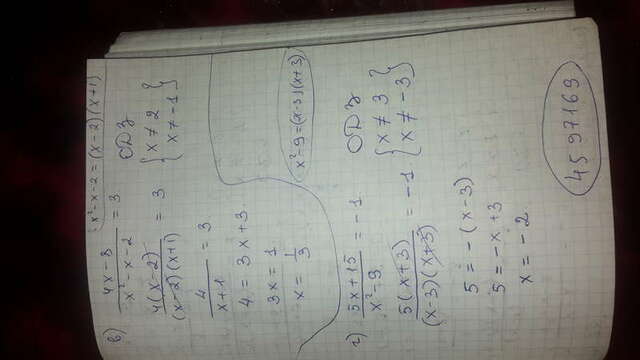 в) (4x-8)/(x²-x-2) = 3
x²-x-2=(x-2)(x+1)
4(x-2)/((x-2)(x+1)) = 3
ОДЗ
{ x≠2
{ x≠-1 }
4/(x+1) = 3
4 = 3x+3
3x = 1
x = 1/3
г) (5x+15)/(x²-9) = -1
x²-9=(x-3)(x+3)
5(x+3)/((x-3)(x+3)) = -1
ОДЗ
{ x≠3
{ x≠-3 }
5 = -(x-3)
5 = -x+3
x = -2
4597169